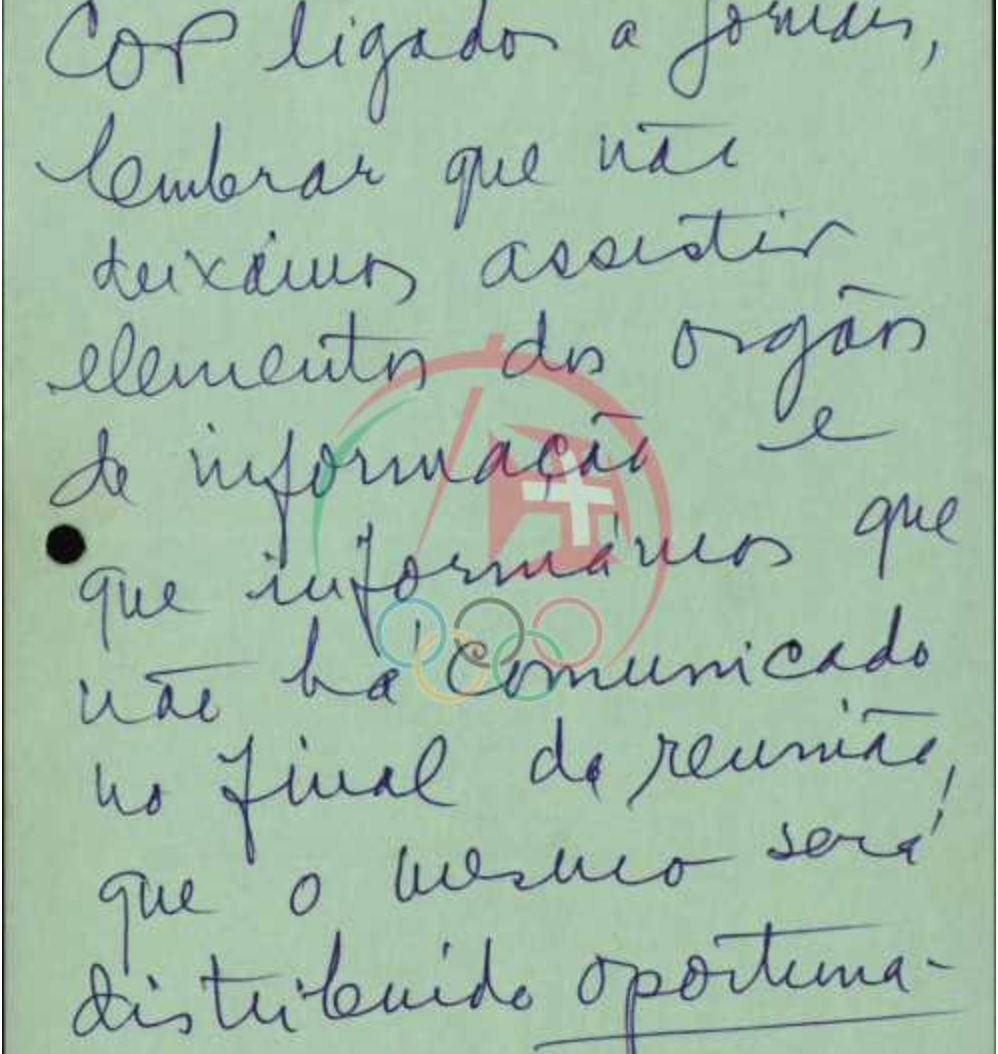 COP ligados a jornais,
lembrar que não
deixámos assistir
elementos dos orgãos
de informação e
que informámos que
não há comunicado
no final da reunião,
que o mesmo será
distribuido oportuna-